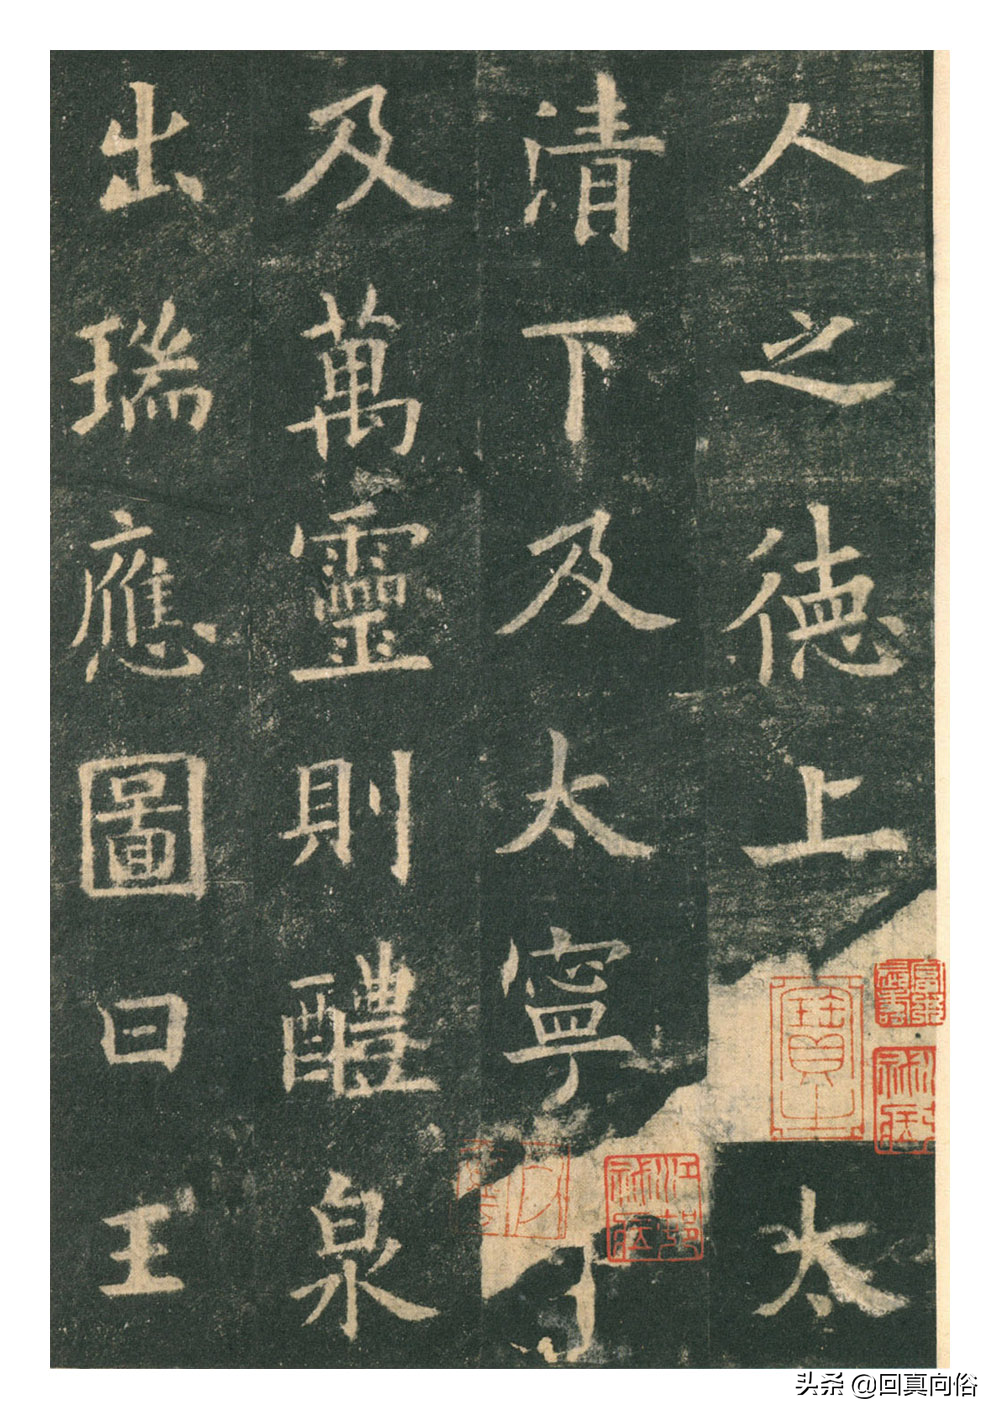 人之德上太
清下及太寧
及萬靈則醴泉
出瑞應圖曰王
头条 @回真向俗